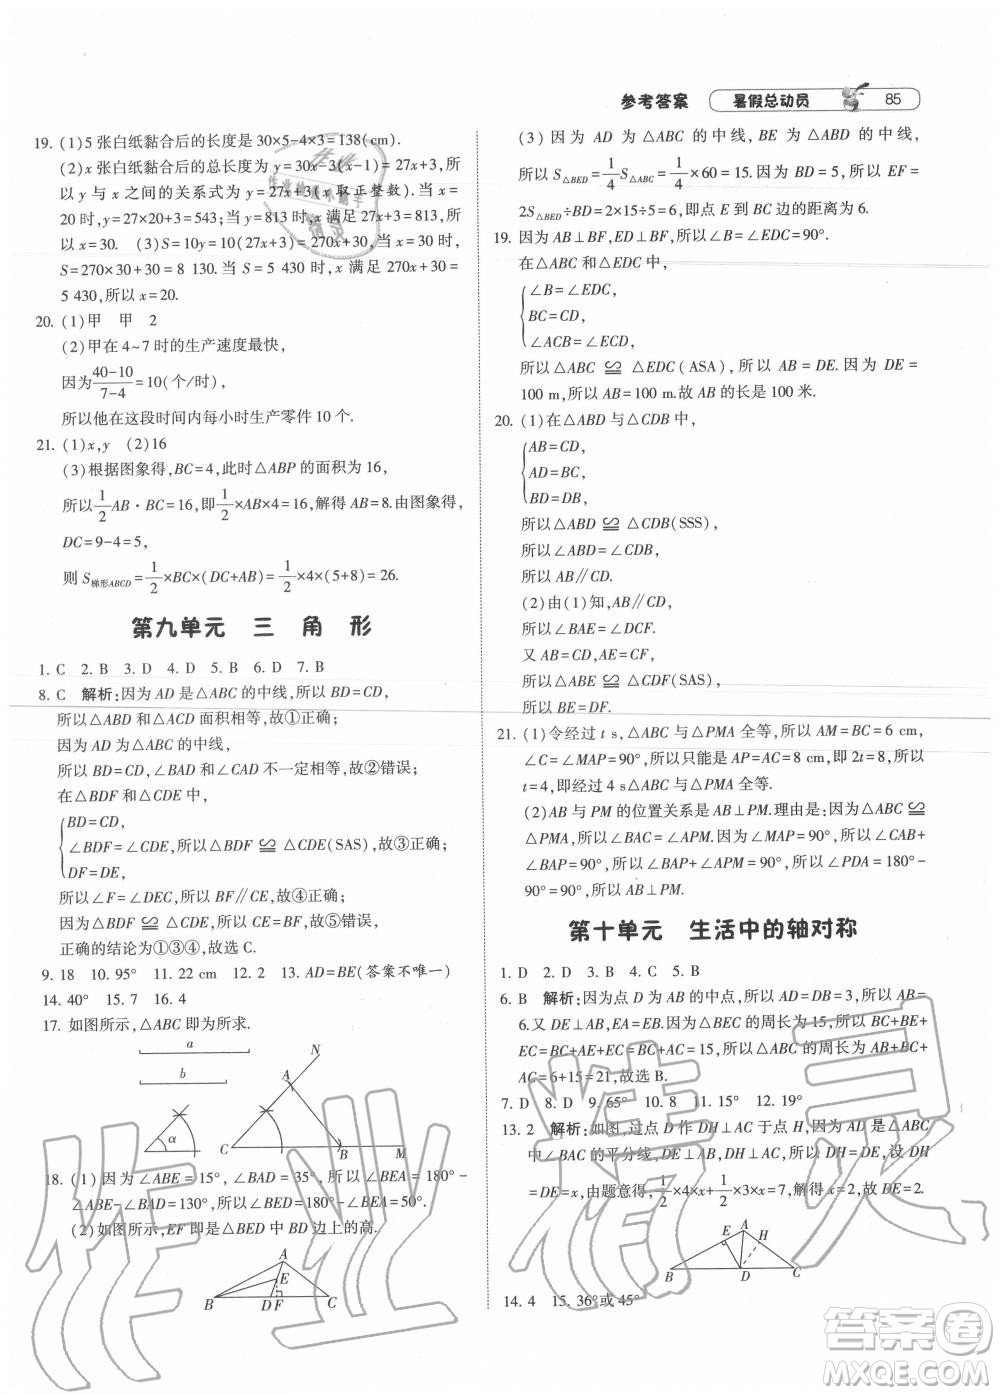 参考答案 暑假总动员 85
19. (1)5 张白纸黏合后的长度是 30×5-4×3=138(cm).
(2)x 张白纸黏合后的总长度为 y=30x-3(x-1)=27x+3,所
以 y 与 x 之间的关系式为 y=27x+3(x 取正整数). 当 x=
20 时,y=27×20+3=543;当 x 满足 27x+3=813 时,解得
x=30. (3)S=10y=10(27x+3)=270x+30;当 x=30 时,
S=270×30+30=8 130. 当 S=5 430 时, x 满足 270x+30=
5 430,所以 x=20.
20. (1)甲 甲 2
(2)甲在 4~7 时的生产速度最快,
因为\frac{40-10}{7-4}=10(个/时),
所以他在这段时间内每小时生产零件 10 个.
21. (1)x,y (2)16
(3)根据图象得,BC=4,此时△ABP 的面积为 16,
所以\frac{1}{2}AB·BC=16,即\frac{1}{2}×AB×4=16,解得 AB=8.由图象得,
DC=9-4=5,
则 S梯形ABCD=\frac{1}{2}×BC×(DC+AB)=\frac{1}{2}×4×(5+8)=26.
第九单元 三 角 形
1. C 2. B 3. D 4. D 5. B 6. D 7. B
8. C 解析:因为 AD 是△ABC 的中线,所以 BD=CD,
所以△ABD 和△ACD 面积相等,故①正确;
因为 AD 为△ABC 的中线,
所以 BD=CD,∠BAD 和∠CAD 不一定相等,故②错误;
在△BDF 和△CDE 中,
BD=CD,
∠BDF=∠CDE,所以△BDF≌△CDE(SAS),故③正确;
DF=DE,
所以∠F=∠DEC,所以 BF∥CE,故④正确;
因为△BDF≌△CDE,所以 CE=BF,故⑤错误,
正确的结论为①③④,故选 C.
9. 18 10. 95° 11. 22 cm 12. 2 13. AD=BE(答案不唯一)
14. 40° 15. 7 16. 4
17. 如图所示,△ABC 即为所求.
a
b
α
N
A
C B M
18. (1)因为∠ABE=15°,∠BAD=35°,所以∠BEA=180°-
∠ABE-∠BAD=130°,所以∠BED=180°-∠BEA=50°.
(2)如图所示,EF 即是△BED 中 BD 边上的高.
A
E
B D F C
(3) 因 为 AD 为△ABC 的 中 线, BE 为△ABD 的 中 线,
所以 S△BED=\frac{1}{4}S△ABC=\frac{1}{4}×60=15. 因为 BD=5,所以 EF=
2S△BED÷BD=2×15÷5=6,即点 E 到 BD 边的距离为 6.
19. 因为 AB⊥BF,ED⊥BF,所以∠B=∠EDC=90°.
在△ABC 和△EDC 中,
∠B=∠EDC,
BC=CD,
∠ACB=∠ECD,
所以△ABC≌△EDC(ASA),所以 AB=DE.因为 DE=
100 m,所以 AB=100 m.故 AB 的长是 100 米.
20. (1)在△ABD 与△CDB 中,
AB=CD,
AD=BC,
BD=DB,
所以△ABD≌△CDB(SSS),
所以∠ABD=∠CDB,
所以 AB∥CD.
(2)由(1)知,AB∥CD,
所以∠BAE=∠DCF.
又 AB=CD,AE=CF,
所以△ABE≌△CDF(SAS),
所以 BE=DF.
21. (1)令经过 t s,△ABC 与△PMA 全等,所以 AM=BC=6 cm,
∠C=∠MAP=90°,所以只能是 AP=AC=8 cm,即 2t=8,所以
t=4,即经过 4 s△ABC 与△PMA 全等.
(2)AB 与 PM 的位置关系是 AB⊥PM.理由是:因为△ABC≌
△PMA,所以∠BAC=∠APM.因为∠MAP=90°,所以∠CAB+
∠BAP=90°,所以∠BAP+∠APM=90°,所以∠PDA=180°-
90°=90°,所以 AB⊥PM.
第十单元 生活中的轴对称
1. D 2. D 3. B 4. C 5. B
6. B 解析:因为点 D 为 AB 的中点,所以 AD=DB=3,所以 AB=
6.又 DE⊥AB,EA=EB.因为△BEC 的周长为 15,所以 BC+BE+
EC=15,所以 BC+AE+EC=BC+AC=15,所以△ABC 的周长为 AB+
BC+AC=6+15=21,故选 B.
7. D 8. D 9. 65° 10. 8 11. 15° 12. 19°
13. 2 解析:如图,过点 D 作 DH⊥AC 于点 H,因为 AD 是△ABC
中∠BAC 的平分线,DE⊥AB,DH⊥AC,所以 DE=DH,设 DH
=DE=x,由题意得,\frac{1}{2}×4×x+\frac{1}{2}×3×x=7,解得 x=2,故 DE=2.
A
E H
B D C
14. 4 15. 36°或 45°
作业精灵
答案圈
MXQE.COM